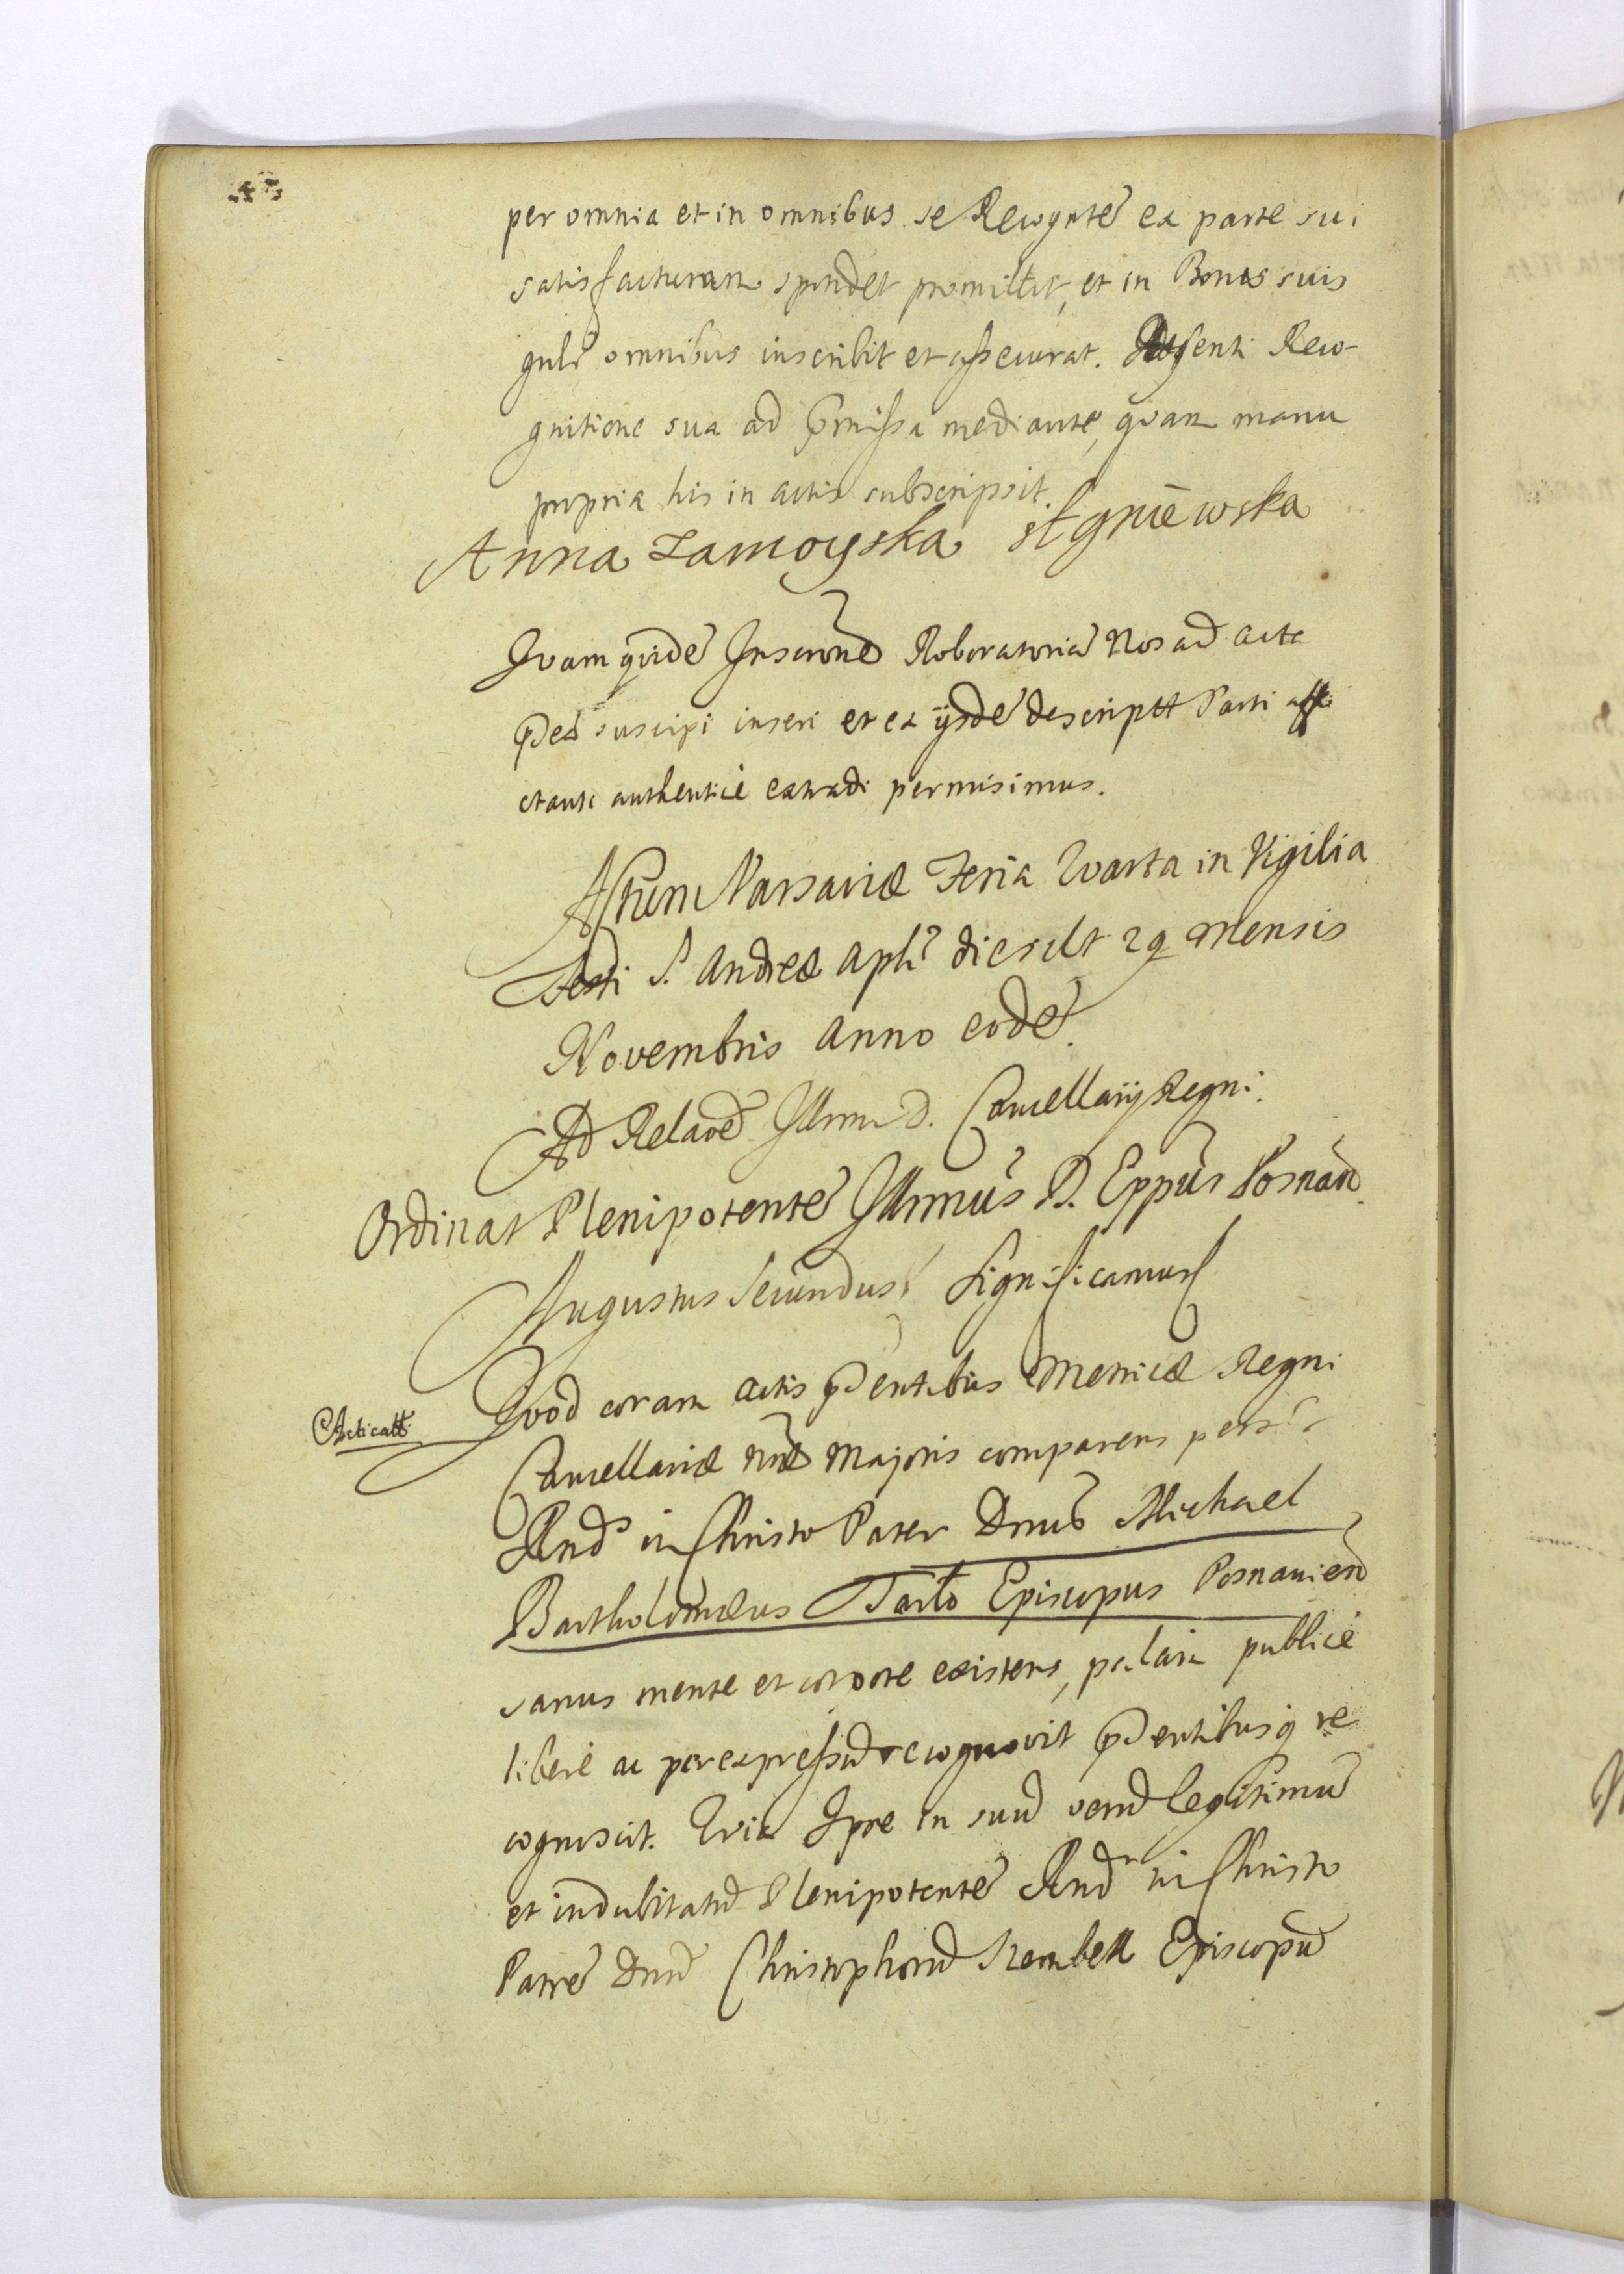 per omnia et in omnibus se Recognte ex parte sui
satisfacturam spondet promittit, et in Bonis suis
gnlr omnibus inscribit et assecurat. Pnsenti Reco-
gnitione sua ad pmissa mediante, quam manu
propria his in actis subscripsit.
Anna Zamoyska
Quam quide Inscrone Roboratoria Nos ad acta
pntia suscipi inseri et ex ijsde descriptt Parti affe
ctanti authenticè extradi permisimus.
Actum Varsaviæ Feria Quarta in Vigilia
Festi S. Andreæ Apli die scilt 29 Mensis
Novembris Anno eode.
Ad Relaoe Illmi D. Cancellarij Regni.
Ordinat Plenipotente Illmus D. Eppus Posnan.
Augustus Secundus Significamus
Acticatt.
Quod coram actis pntibus Metricæ Regni
Cancellariæ nræ Majoris comparens persr
Rnds in Christo Pater Dnus Michael
Bartholomæus Tarło Episcopus Posnanien
sanus mente et corpore existens, palàm publicè
liberè ac per expressum recognovit pntibusq re
cognoscit. Quia Ipse in suu veru legitimu
et indubitatu Plenipotente Rndm in Christo
Patre Dnu Christophoru Szembek Episcopu